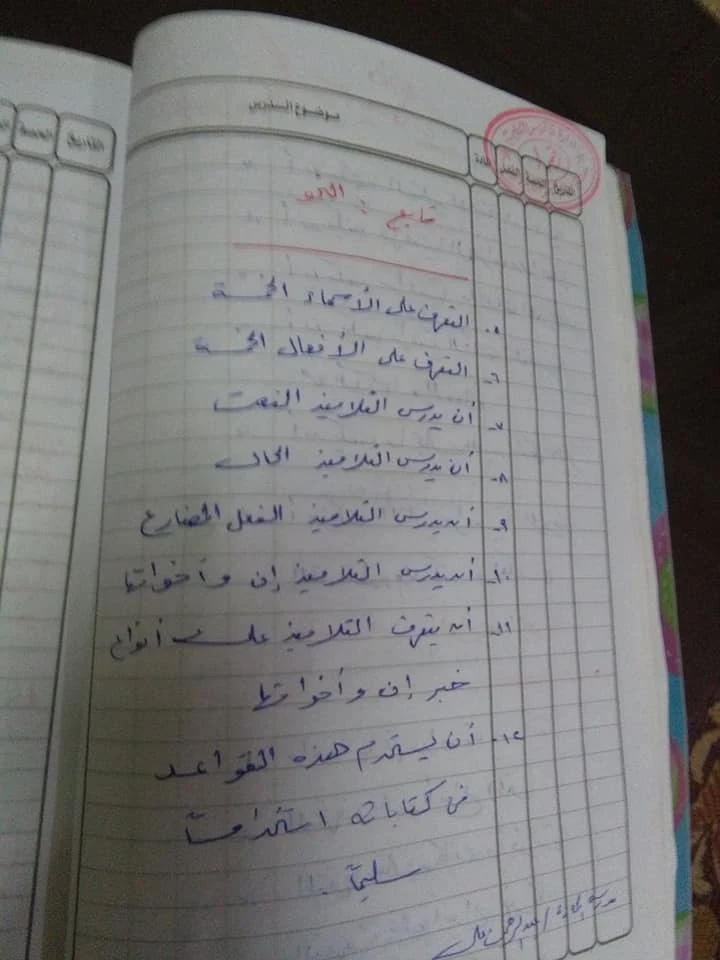 موضوع الدرس
المادة
الفصل
الحصة
التاريخ
التاريخ
الحصة
تابع : النحو
٥- التعرف على الأسماء الخمسة
٦- التعرف على الأفعال الخمسة
٧- أن يدرس التلاميذ النعت
٨- أن يدرس التلاميذ الحال
٩- أن يدرس التلاميذ الفعل المضارع
١٠- أن يدرس التلاميذ إن وأخواتها
١١- أن يتعرف التلاميذ على أنواع
خبر إن وأخواتها
١٢- أن يستخدم هذه القواعد
فى كتاباته استخداماً
سليماً